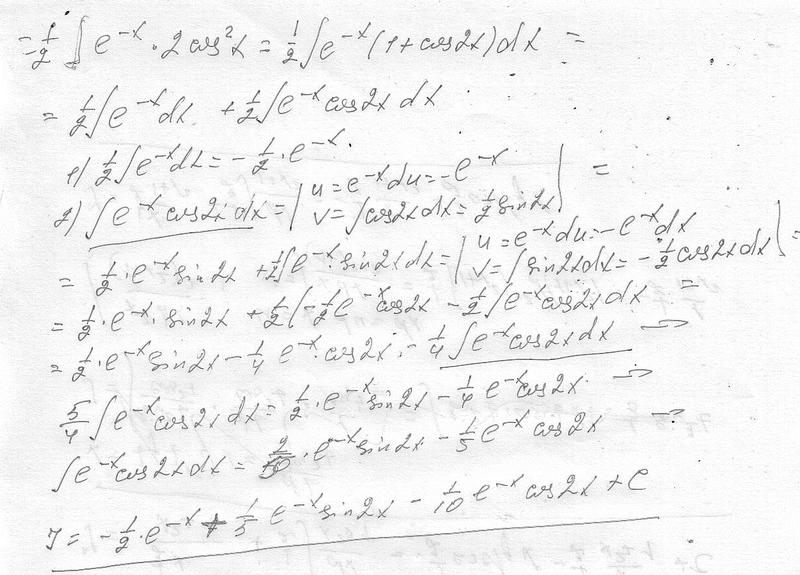 = 1/2 ∫ e^{-x} · 2 cos²x = 1/2 ∫ e^{-x} (1 + cos2x) dx =
= 1/2 ∫ e^{-x} dx + 1/2 ∫ e^{-x} cos2x dx
1) 1/2 ∫ e^{-x} dx = - 1/2 · e^{-x}.
2) ∫ e^{-x} cos2x dx = | u = e^{-x} du = -e^{-x} | =
| v = ∫ cos2x dx = 1/2 sin2x |
= 1/2 · e^{-x} sin2x + 1/2 ∫ e^{-x} · sin2x dx = | u = e^{-x} du = -e^{-x} dx | =
| v = ∫ sin2x dx = - 1/2 cos2x dx |
= 1/2 · e^{-x} · sin2x + 1/2 ( - 1/2 e^{-x} cos2x - 1/2 ∫ e^{-x} cos2x dx =
= 1/2 · e^{-x} sin2x - 1/4 e^{-x} · cos2x - 1/4 ∫ e^{-x} cos2x dx ⇒
5/4 ∫ e^{-x} cos2x dx = 1/2 · e^{-x} sin2x - 1/4 e^{-x} cos2x ⇒
∫ e^{-x} cos2x dx = · e^{-x} sin2x - 1/5 e^{-x} cos2x ⇒
J = - 1/2 · e^{-x} + 1/5 e^{-x} sin2x - 1/10 e^{-x} cos2x + C